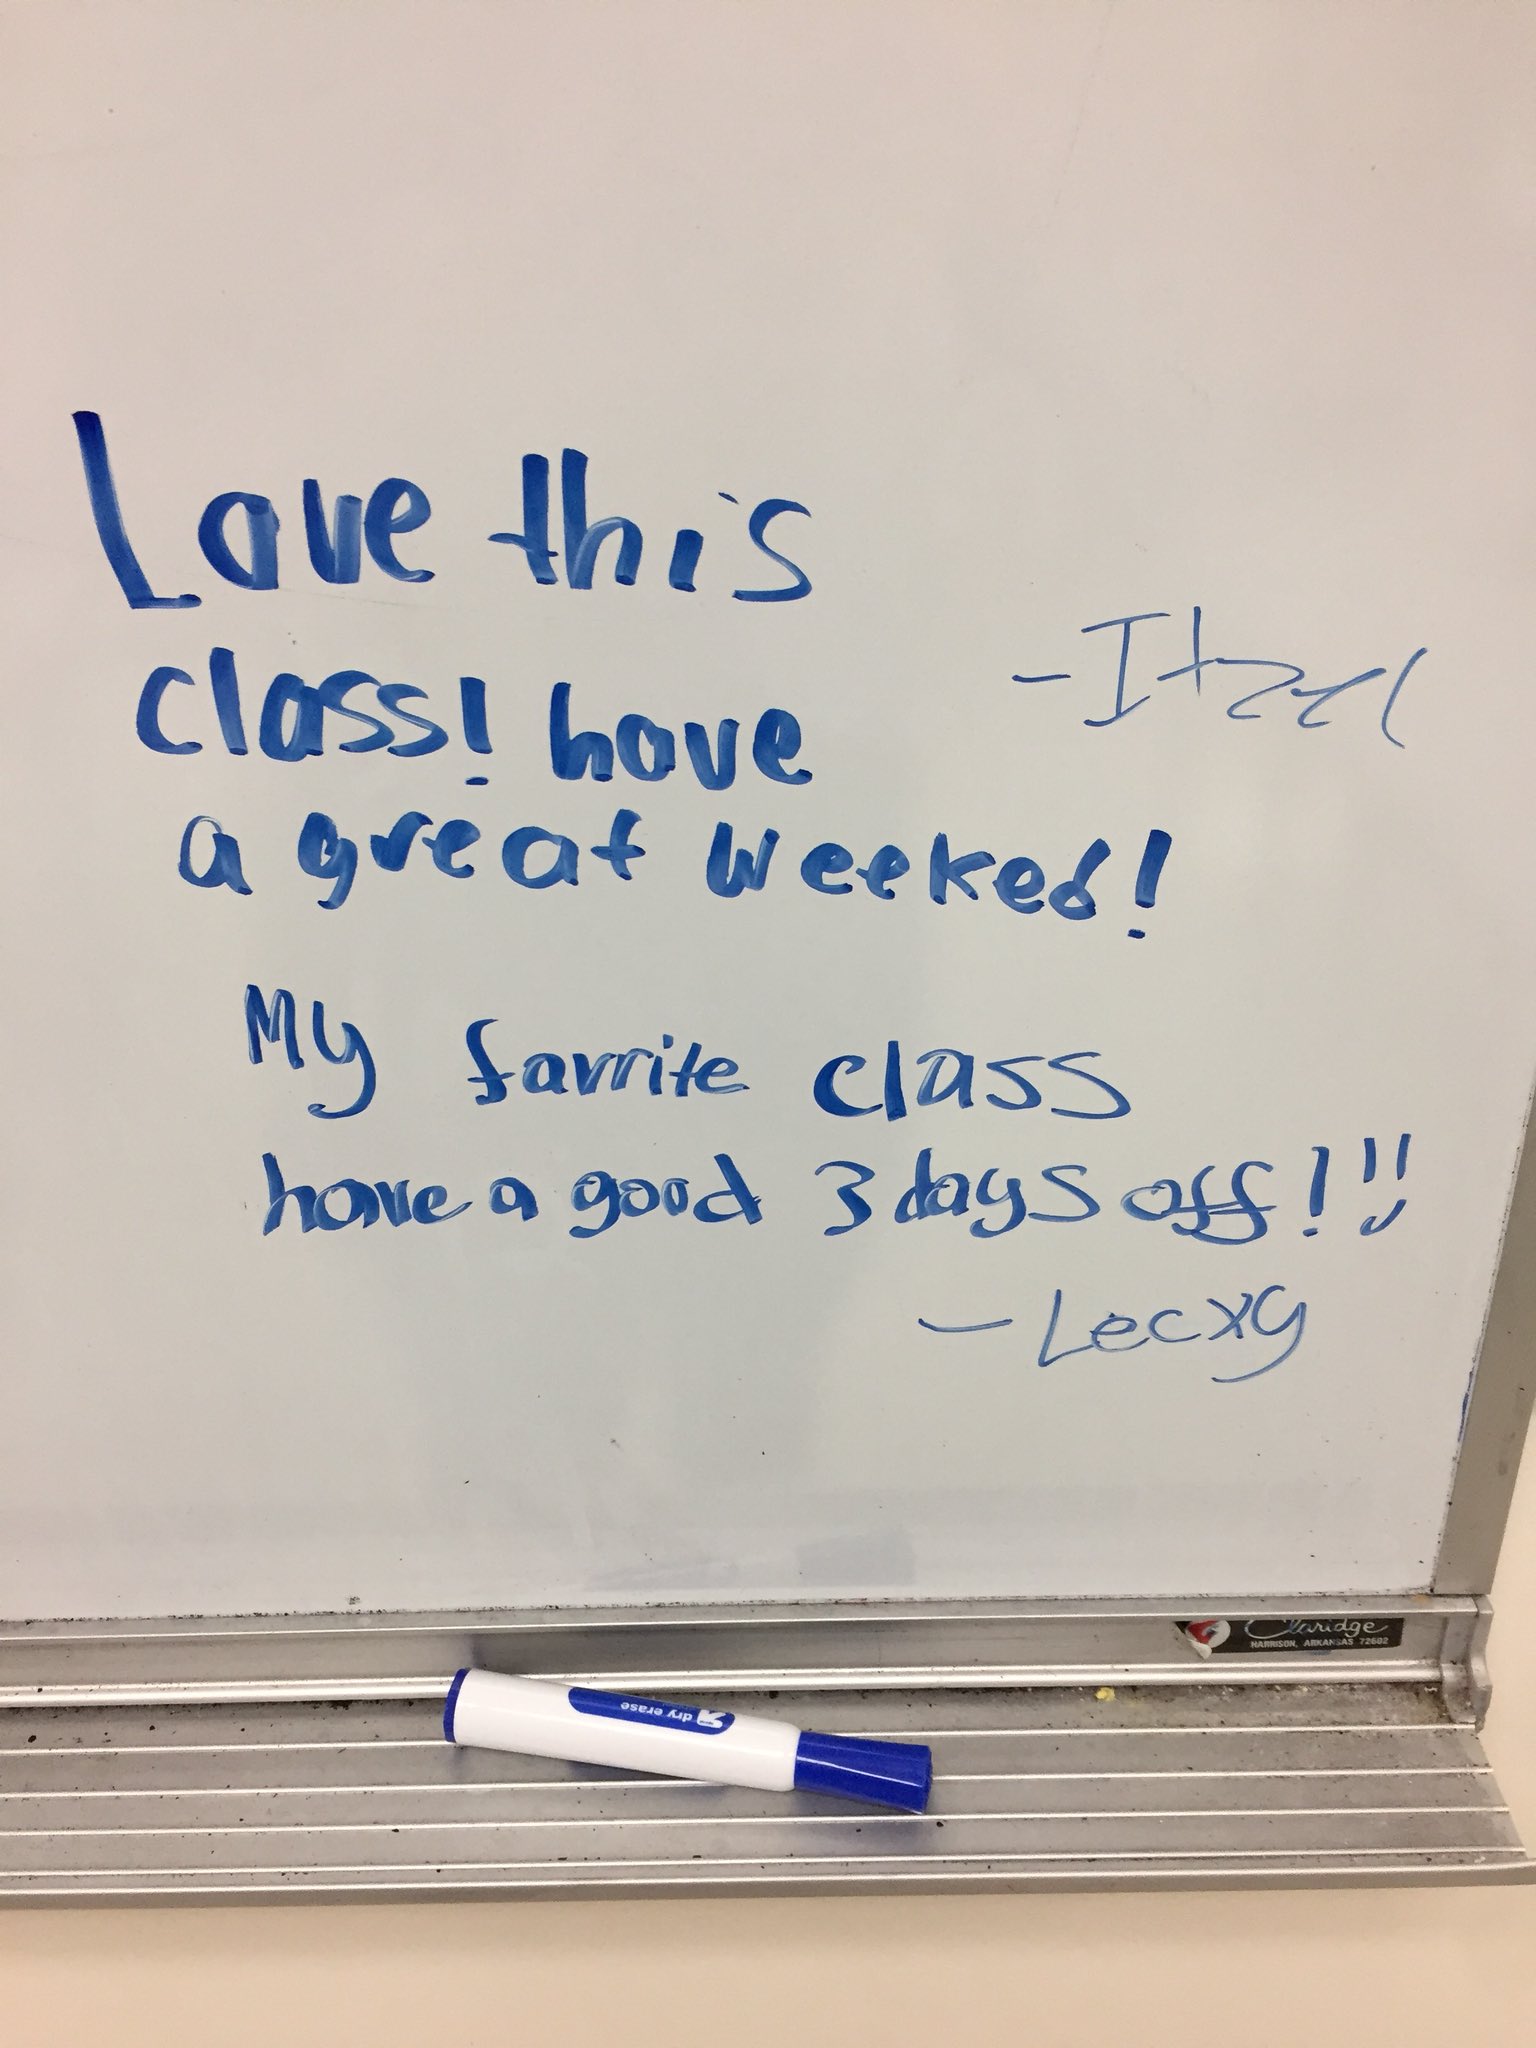 Love this
class! have
a great weeked!
- Itzel
My favrite class
have a good 3 days off!!!
- Lecxy
Claridge
HARRISON, ARKANSAS 72602
dry erase